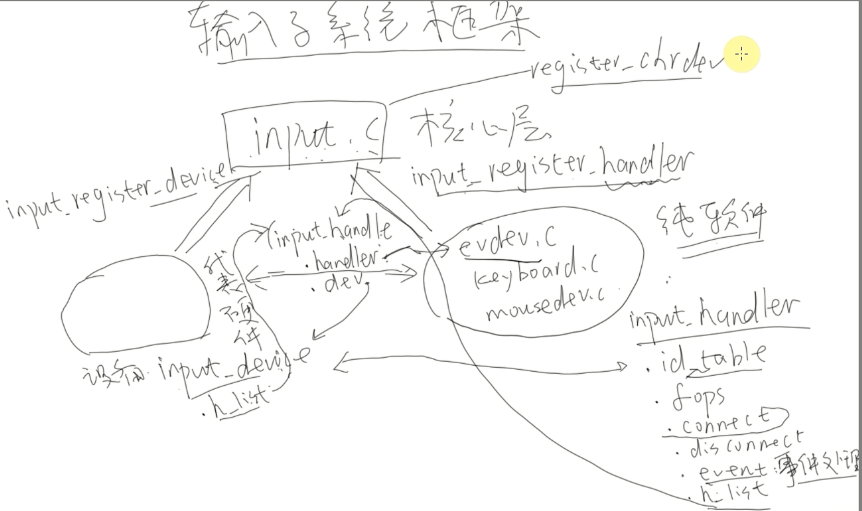 输入子系统框架
register_chrdev
input.c 核心层
input_register_device
input_register_handler
纯软件
input_handle
.handler
.dev
代表硬件
evdev.c
keyboard.c
mousedev.c
设备 input_device
.h_list
input_handler
.id_table
.fops
.connect
.disconnect
.event:事件处理
.h_list